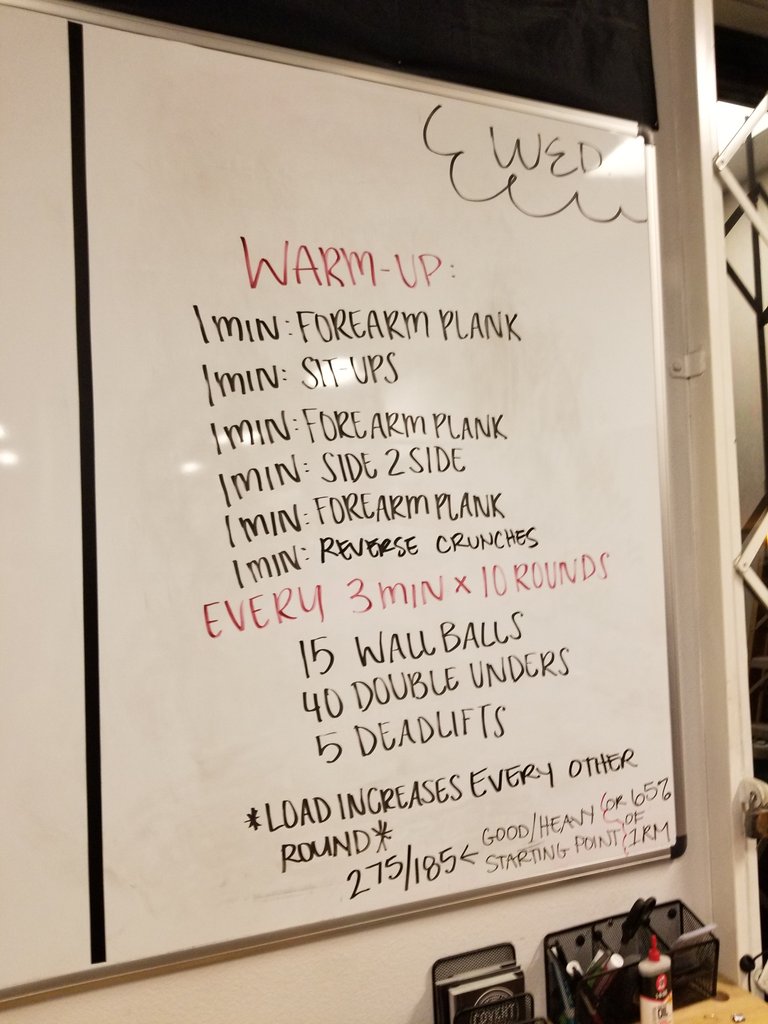 WED.
WARM-UP:
1 MIN: FOREARM PLANK
1 MIN: SIT-UPS
1 MIN: FOREARM PLANK
1 MIN: SIDE 2 SIDE
1 MIN: FOREARM PLANK
1 MIN: REVERSE CRUNCHES
EVERY 3 MIN x 10 ROUNDS
15 WALL BALLS
40 DOUBLE UNDERS
5 DEADLIFTS
*LOAD INCREASES EVERY OTHER
ROUND*
275/185 ← GOOD/HEAVY STARTING POINT (OR 65% OF 1RM
COVERT
OIL